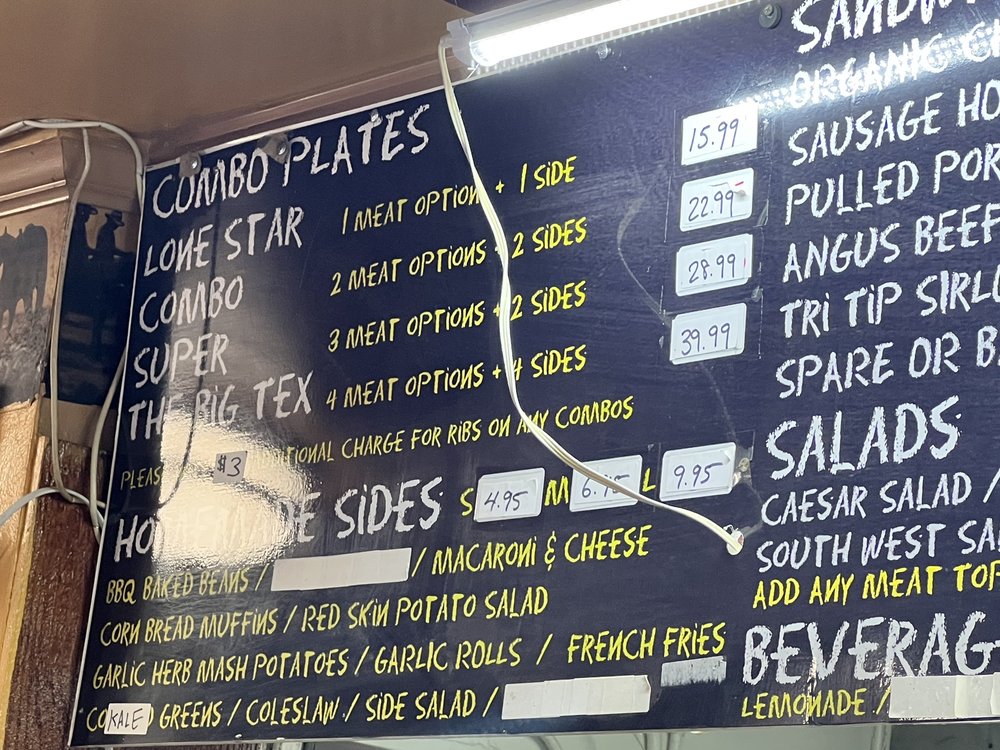 COMBO PLATES
LONE STAR 1 MEAT OPTION + 1 SIDE 15.99
COMBO 2 MEAT OPTIONS 2 SIDES 22.99
SUPER 3 MEAT OPTIONS 2 SIDES 28.99
THE BIG TEX 4 MEAT OPTIONS + 4 SIDES 39.99
$3 CHARGE FOR RIBS ON ANY COMBOS
SIDES S 4.95 M L 9.95
BBQ BAKED BEANS / / MACARONI & CHEESE
CORN BREAD MUFFINS / RED SKIN POTATO SALAD
GARLIC HERB MASH POTATOES / GARLIC ROLLS / FRENCH FRIES
KALE GREENS / COLESLAW / SIDE SALAD /
ORGANIC
SAUSAGE
PULLED
ANGUS BEEF
TRI TIP
SPARE OR
SALADS
CAESAR SALAD /
SOUTH WEST
ADD ANY MEAT
LEMONADE /